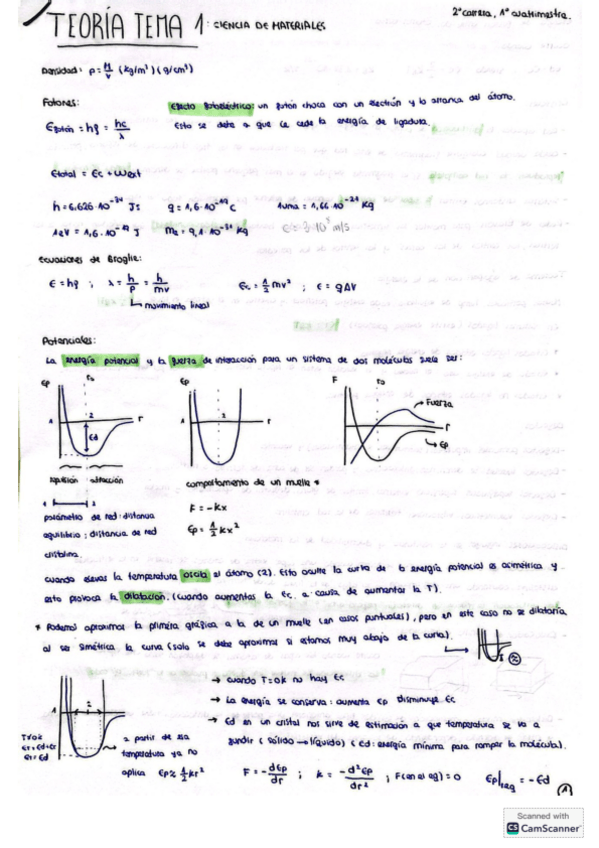 TEORÍA TEMA 1: CIENCIA DE MATERIALES
2º carrera, 1º cuatrimestre.
Densidad: ρ = M/V (kg/m³)(g/cm³)
Fotones:
Efecto fotoeléctrico: un fotón choca con un electrón y lo arranca del átomo.
Efotón = hf = hc/λ
Esto se debe a que le cede la energía de ligadura.
Etotal = Ec + Wext
h = 6,626·10⁻³⁴ Js q = 1,6·10⁻¹⁹ C 1uma = 1,66·10⁻²⁴ kg
1eV = 1,6·10⁻¹⁹ J me = 9,1·10⁻³¹ kg c = 3·10⁸ m/s
Ecuaciones de Broglie:
E = hf ; λ = h/p = h/mv Ec = 1/2 mv² ; E = qΔV
movimiento lineal
Potenciales:
La energía potencial y la fuerza de interacción para un sistema de dos moléculas suele ser:
Ep r₀ Ep F r₀
Fuerza
1 2 r 1 2 r r
Ed Ep
repulsión atracción
comportamiento de un muelle *
F = -kx
parámetro de red: distancia
equilibrio; distancia de red
cristalina.
Ep = 1/2 kx²
cuando elevas la temperatura oscila el átomo (2). Esto ocurre la curva de la energía potencial es asimétrica y
esto provoca la dilatación. (cuando aumentas la Ec, a causa de aumentar la T).
* Podemos aproximar la primera gráfica a la de un muelle (en casos puntuales), pero en este caso no se dilataría
al ser simétrica la curva (solo se debe aproximar si estamos muy abajo de la curva).
2
→ cuando T=0k no hay Ec
→ La energía se conserva: aumenta Ep disminuye Ec
→ Ed en un cristal nos sirve de estimación a que temperatura se va a
fundir (sólido → líquido) (Ed: energía mínima para romper la molécula).
1 2
T≠0k
ET = Ed+Ec
ET = Ed
a partir de esa
temperatura ya no
aplica Ep ≈ 1/2 kr²
F = - dEp/dr ; k = -d²Ep/dr² ; F(en el eq) = 0 Ep|req = -Ed
1
Scanned with
CS CamScanner